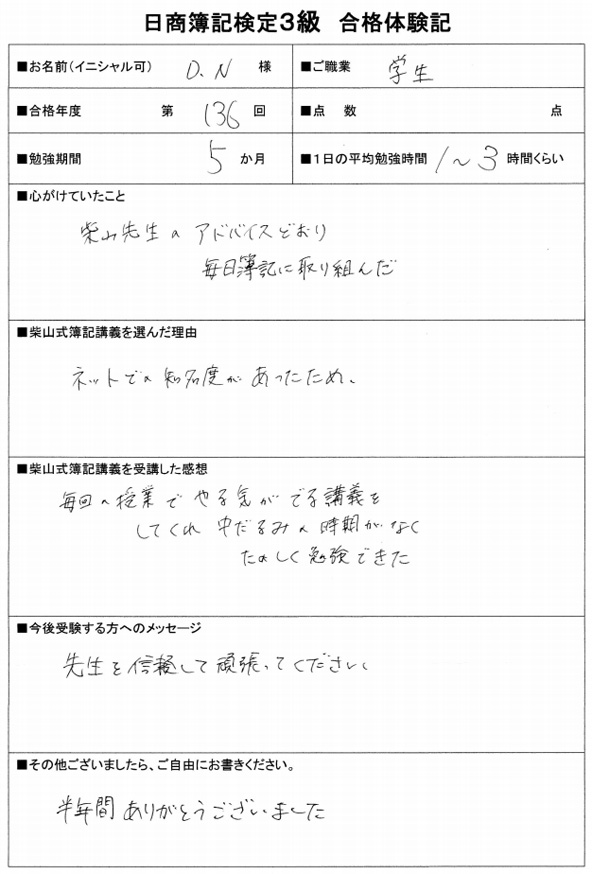 日商簿記検定3級 合格体験記
■お名前(イニシャル可) O.N 様 ■ご職業 学生
■合格年度 第 136 回 ■点 数 点
■勉強期間 5 か月 ■1日の平均勉強時間 1~3 時間くらい
■心がけていたこと
柴山先生のアドバイスどおり
毎日簿記に取り組んだ
■柴山式簿記講義を選んだ理由
ネットでの知名度があったため。
■柴山式簿記講義を受講した感想
毎回の授業でやる気がでる講義を
してくれ中だるみの時期がなく
たのしく勉強できた
■今後受験する方へのメッセージ
先生を信頼して頑張ってください。
■その他ございましたら、ご自由にお書きください。
半年間ありがとうございました